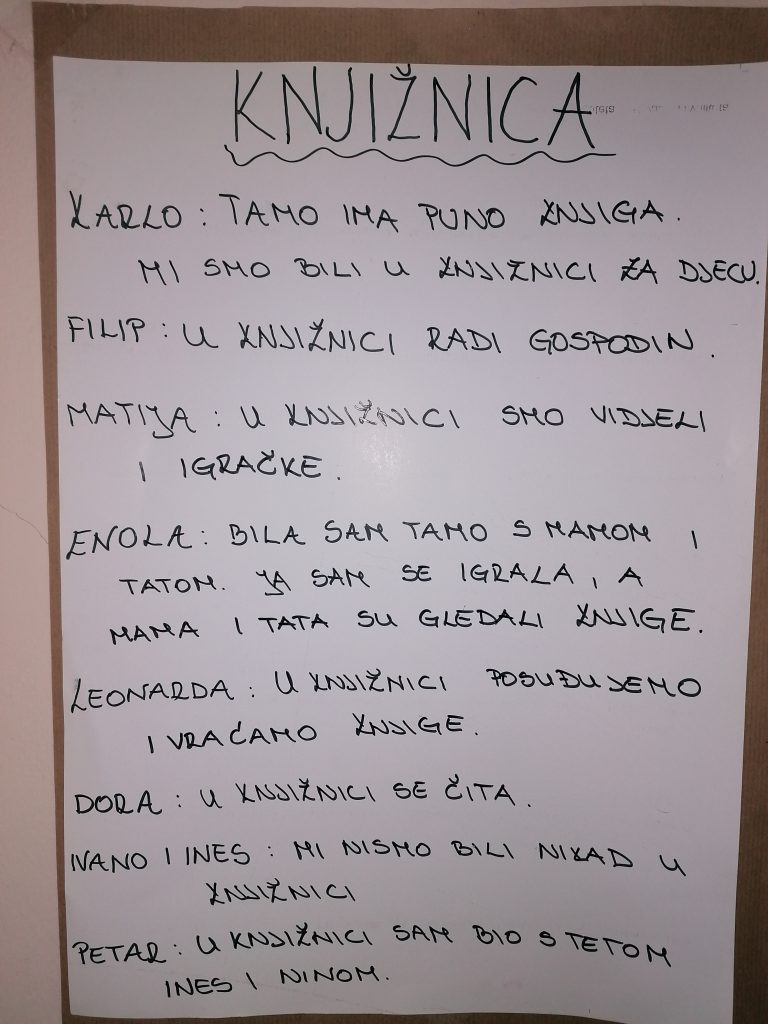 KNJIŽNICA
KARLO: TAMO IMA PUNO KNJIGA.
MI SMO BILI U KNJIŽNICI ZA DJECU.
FILIP: U KNJIŽNICI RADI GOSPODIN.
MATIJA: U KNJIŽNICI SMO VIDJELI
I IGRAČKE.
ENOLA: BILA SAM TAMO S MAMOM I
TATOM. JA SAM SE IGRALA, A
MAMA I TATA SU GLEDALI KNJIGE.
LEONARDA: U KNJIŽNICI POSUĐUJEMO
I VRAĆAMO KNJIGE.
DORA: U KNJIŽNICI SE ČITA.
IVANO I INES: MI NISMO BILI NIKAD U
KNJIŽNICI
PETAR: U KNJIŽNICI SAM BIO S TETOM
INES I NINOM.